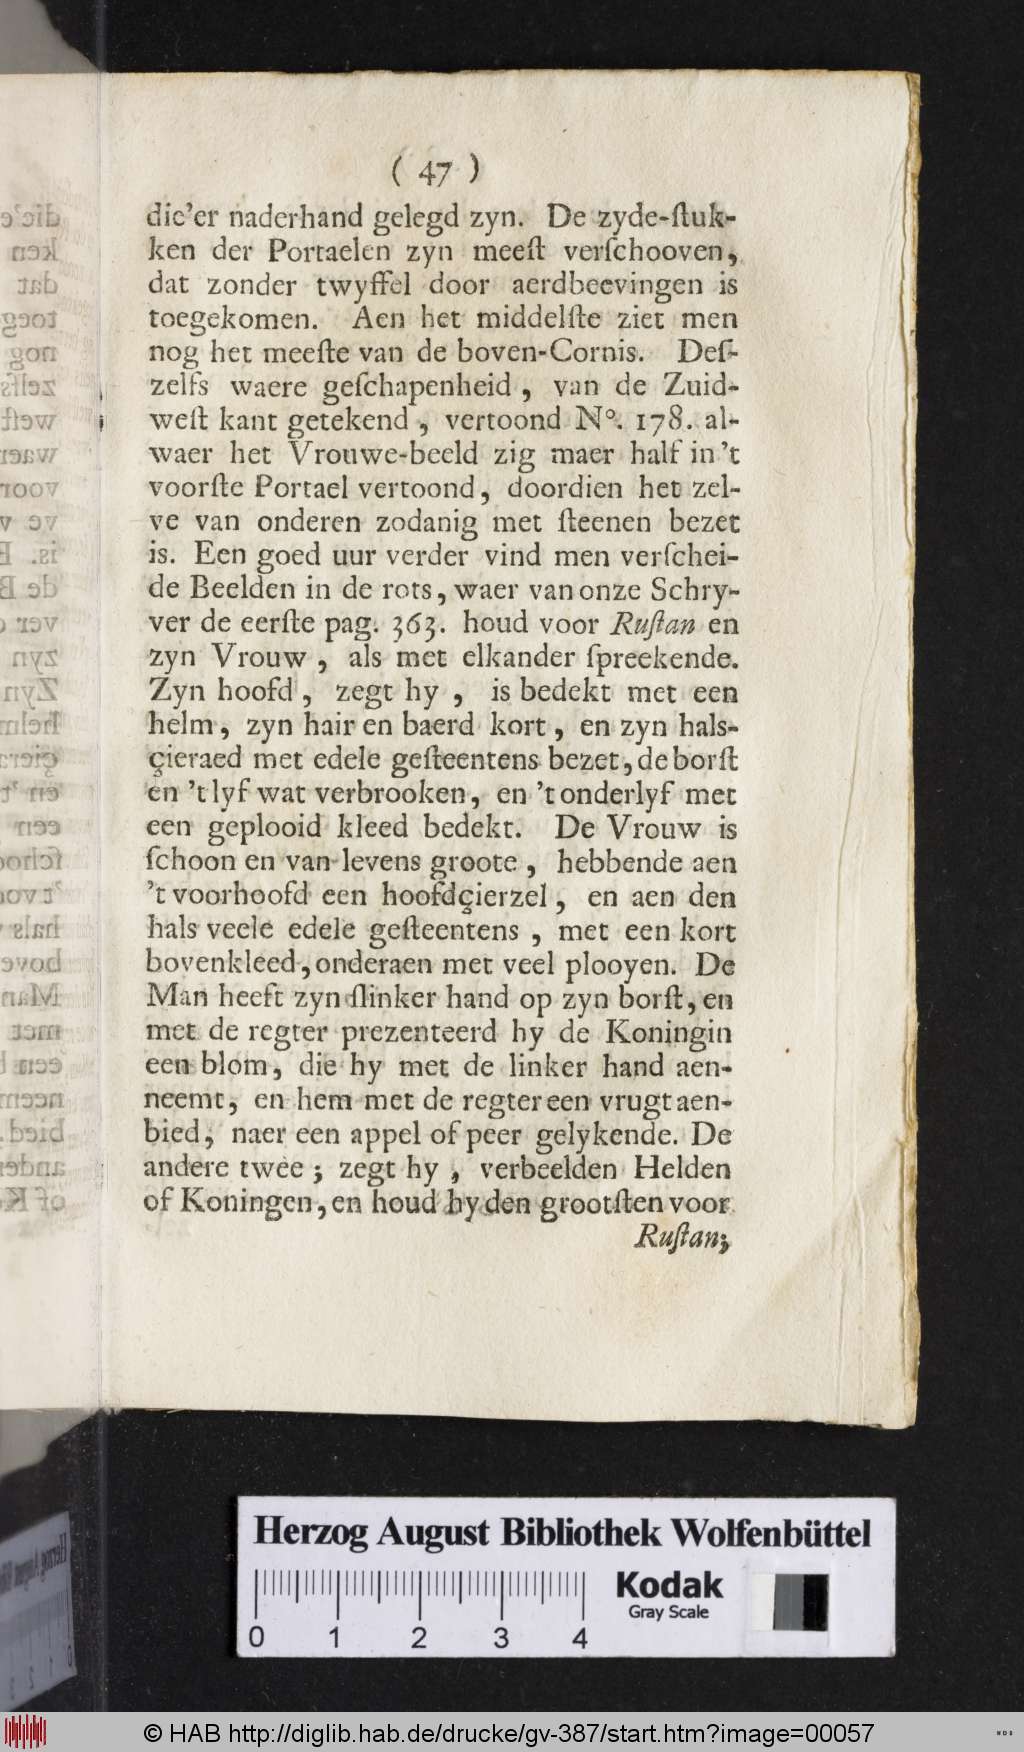 ( 47 )
die'er naderhand gelegd zyn. De zyde-ſtuk-
ken der Portaelen zyn meeſt verſchooven,
dat zonder twyffel door aerdbeevingen is
toegekomen. Aen het middelſte ziet men
nog het meeſte van de boven-Cornis. Deſ-
zelfs waere geſchapenheid, van de Zuid-
weſt kant getekend, vertoond N°. 178. al-
waer het Vrouwe-beeld zig maer half in 't
voorſte Portael vertoond, doordien het zel-
ve van onderen zodanig met ſteenen bezet
is. Een goed uur verder vind men verſchei-
de Beelden in de rots, waer van onze Schry-
ver de eerſte pag. 363. houd voor Ruſtan en
zyn Vrouw, als met elkander ſpreekende.
Zyn hoofd, zegt hy, is bedekt met een
helm, zyn hair en baerd kort, en zyn hals-
çieraed met edele geſteentens bezet, de borſt
en 't lyf wat verbrooken, en 't onderlyf met
een geplooid kleed bedekt. De Vrouw is
ſchoon en van levens groote, hebbende aen
't voorhoofd een hoofdçierzel, en aen den
hals veele edele geſteentens, met een kort
bovenkleed, onderaen met veel plooyen. De
Man heeft zyn ſlinker hand op zyn borſt, en
met de regter prezenteerd hy de Koningin
een blom, die hy met de linker hand aen-
neemt, en hem met de regter een vrugt aen-
bied, naer een appel of peer gelykende. De
andere twee; zegt hy, verbeelden Helden
of Koningen, en houd hy den grootſten voor
Ruſtan;
Herzog August Bibliothek Wolfenbüttel
Kodak
Gray Scale
0 1 2 3 4
© HAB http://diglib.hab.de/drucke/gv-387/start.htm?image=00057